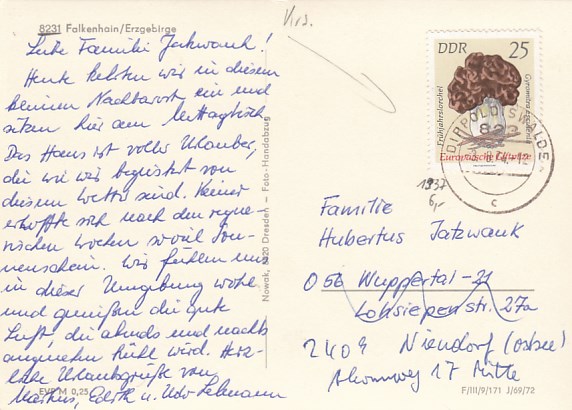 8231 Falkenhain/Erzgebirge
Liebe Familie Jatzwauk!
Heute kehrten wir in diesem
kleinen Nachbarort ein und
sitzen hier am Mittagtisch.
Das Haus ist voller Urlauber,
die wie wir begeistert von
diesem Wetter sind. Keiner
erhoffte sich nach den regne-
rischen Wochen soviel Son-
nenschein. Wir fühlen uns
in dieser Umgebung wohl
und genießen die gute
Luft, die abends und nachts
angenehm kühl wird. Herz-
liche Urlaubsgrüße von
Markus, Edith u. Udo Lehmann
EVP M 0,25
Nowak, 8020 Dresden – Foto-Handabzug
DDR 25
Frühjahrslorchel
Gyromitra esculenta
Europäische Giftpilze
DIPPOLDISWALDE
823
c
Familie
Hubertus Jatzwauk
056 Wuppertal-21
Lohsiepenstr. 27a
2409 Niendorf (Ostsee)
Ahornweg 17 Mitte
F/III/9/171 J/69/72